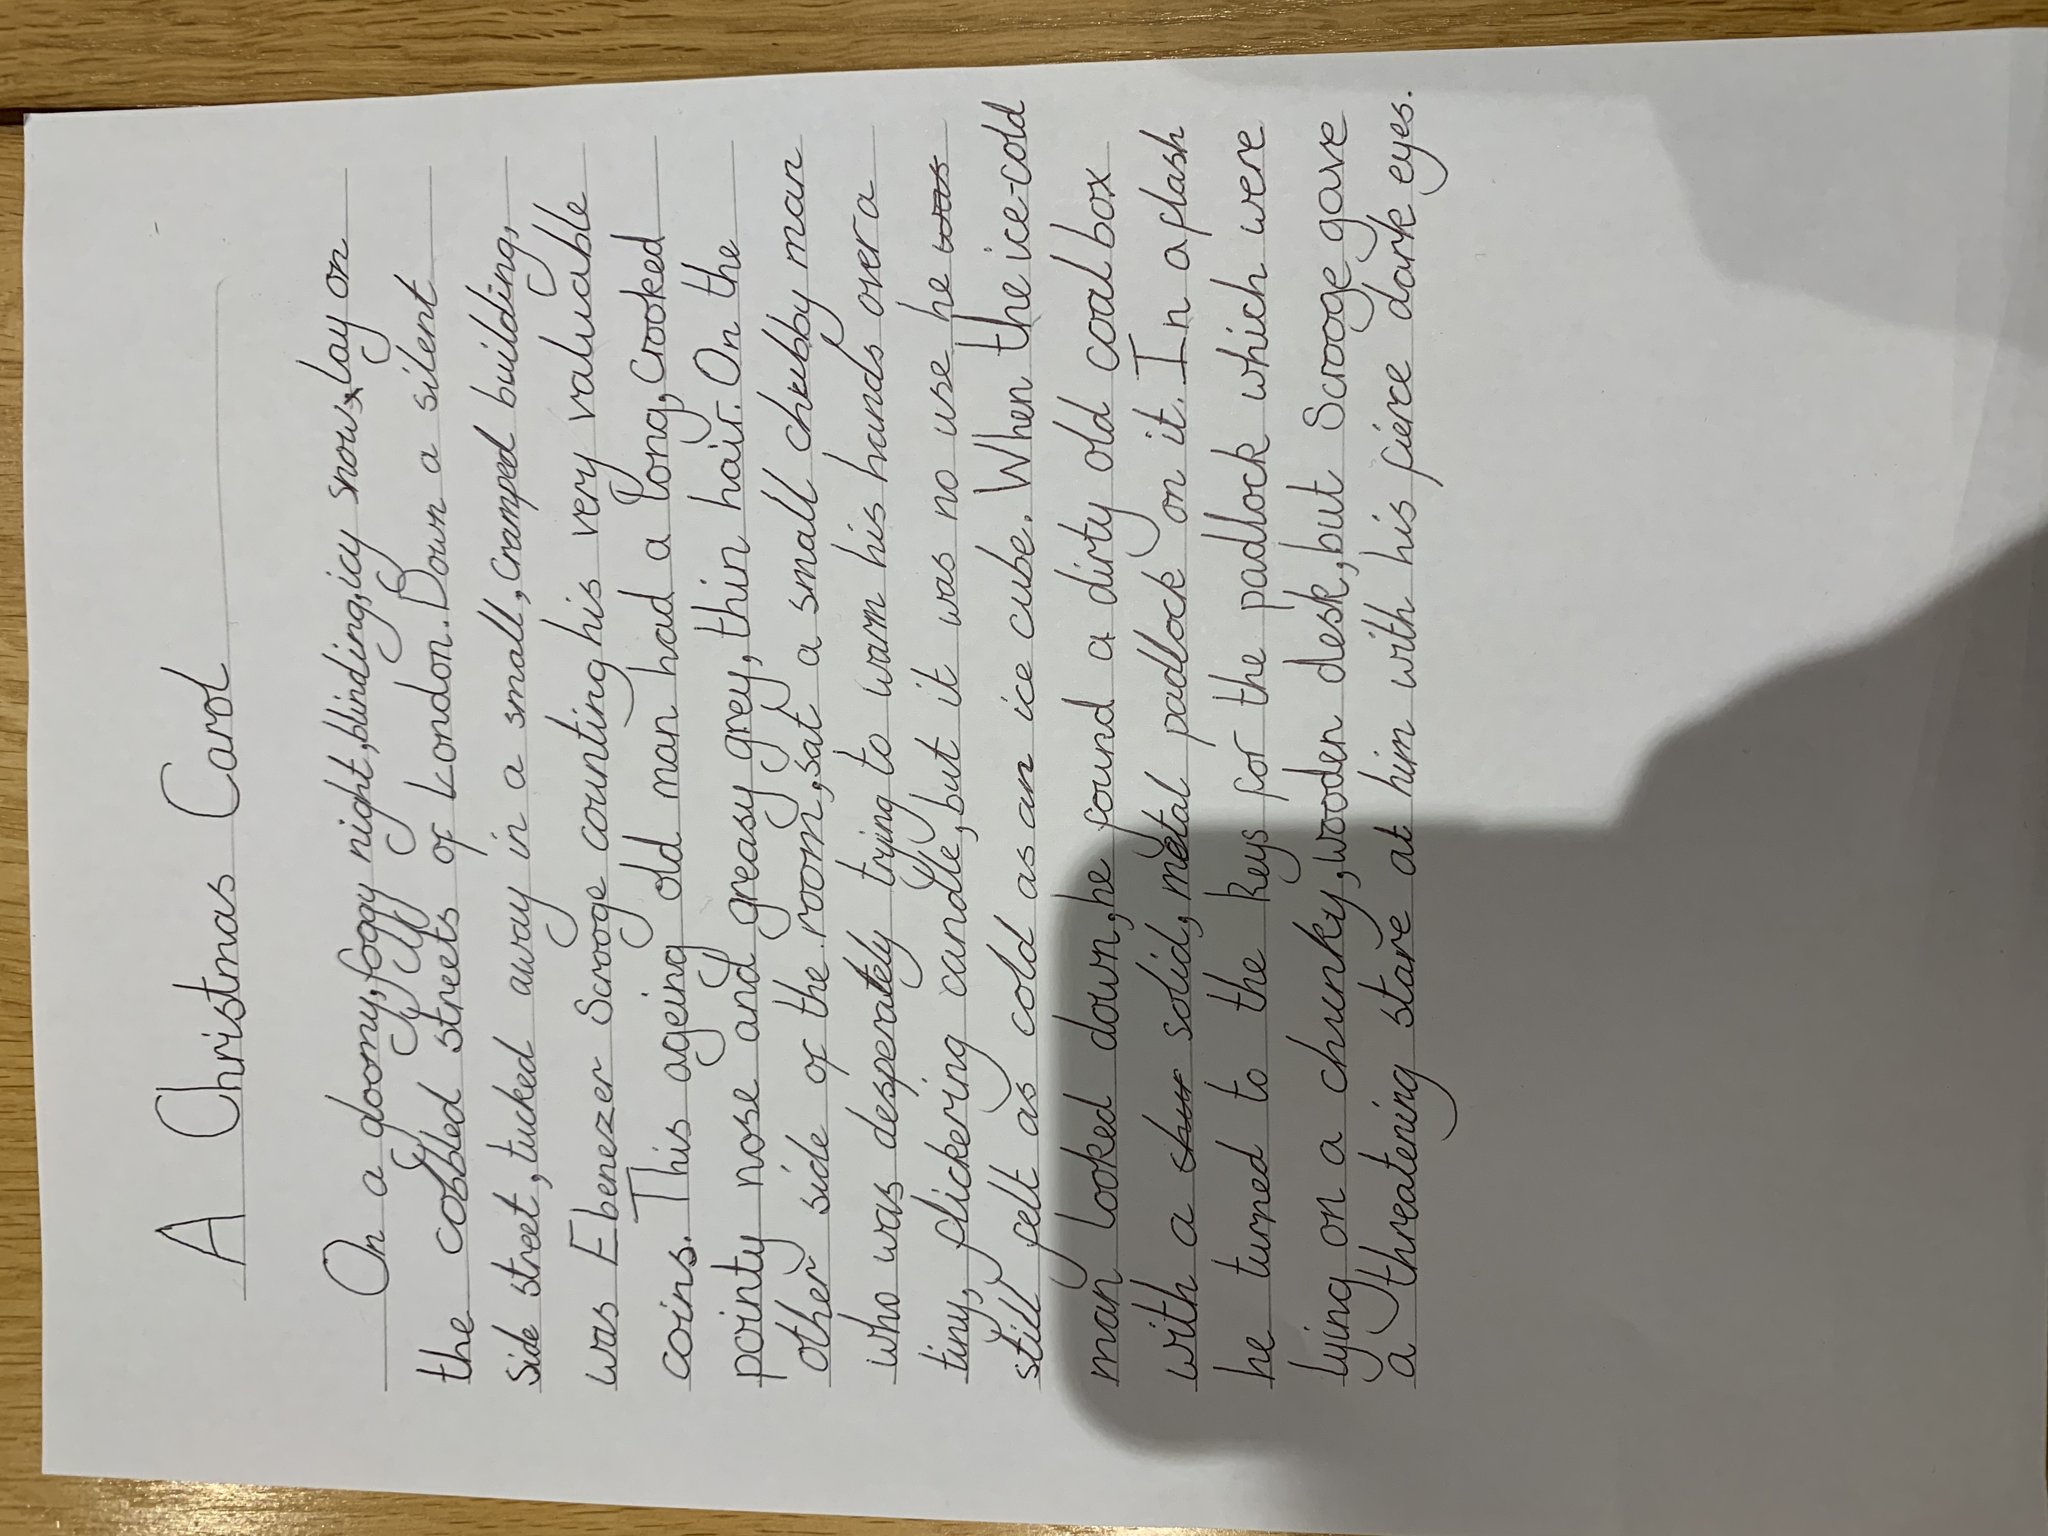 A Christmas Carol
On a gloomy, foggy night, blinding, icy snow, lay on
the cobbled streets of London. Down a silent
side street, tucked away in a small, cramped building,
was Ebenezer Scrooge counting his very valuable
coins. This ageing old man had a long, crooked
pointy nose and greasy grey, thin hair. On the
other side of the room, sat a small chubby man
who was desperately trying to warm his hands over a
tiny, flickering candle, but it was no use he was
still felt as cold as an ice cube. When the ice-cold
man looked down, he found a dirty old coal box
with a solid, metal padlock on it. In a flash
he turned to the keys for the padlock which were
lying on a chunky, wooden desk, but Scrooge gave
a threatening stare at him with his fierce dark eyes.